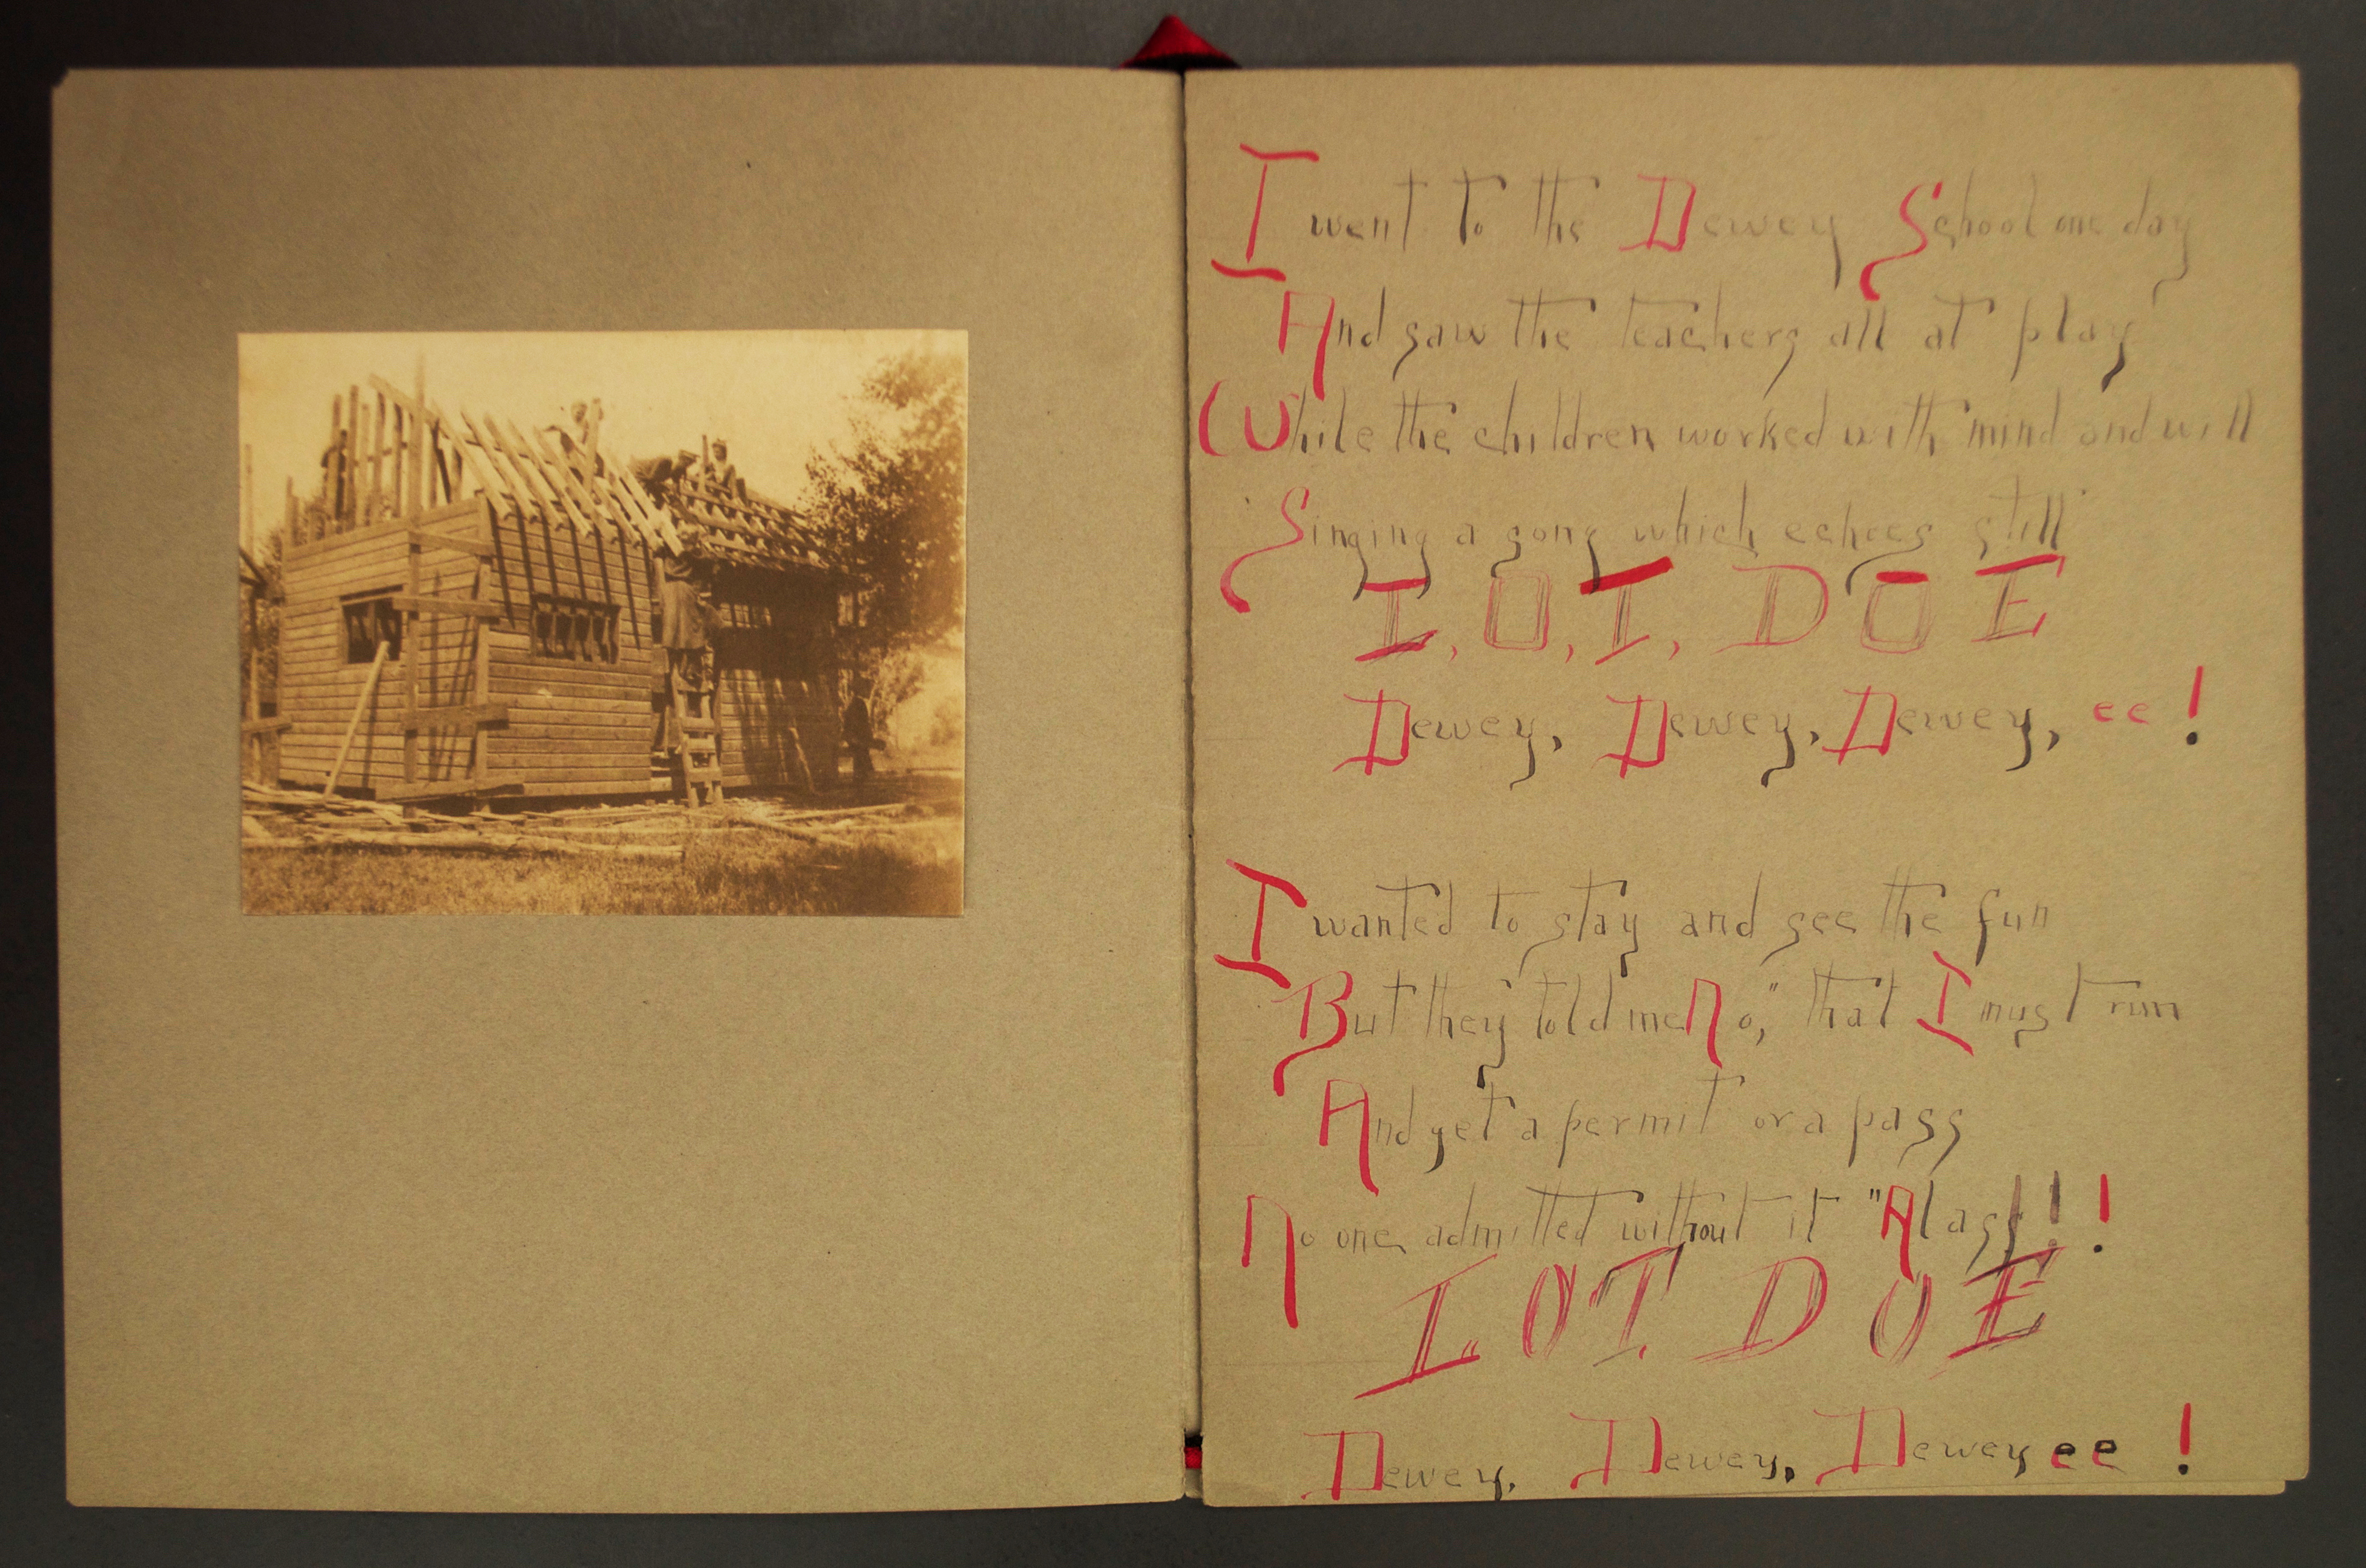 I went to the Dewey School one day
And saw the teachers all at play
While the children worked with mind and will
Singing a song which echoes still
I, O, I, D O E
Dewey, Dewey, Dewey, ee!
I wanted to stay and see the fun
But they told me No," that I must run
And get a permit or a pass
No one admitted without it "Alass!!!
I. O I. D O E
Dewey, Dewey, Dewey ee!